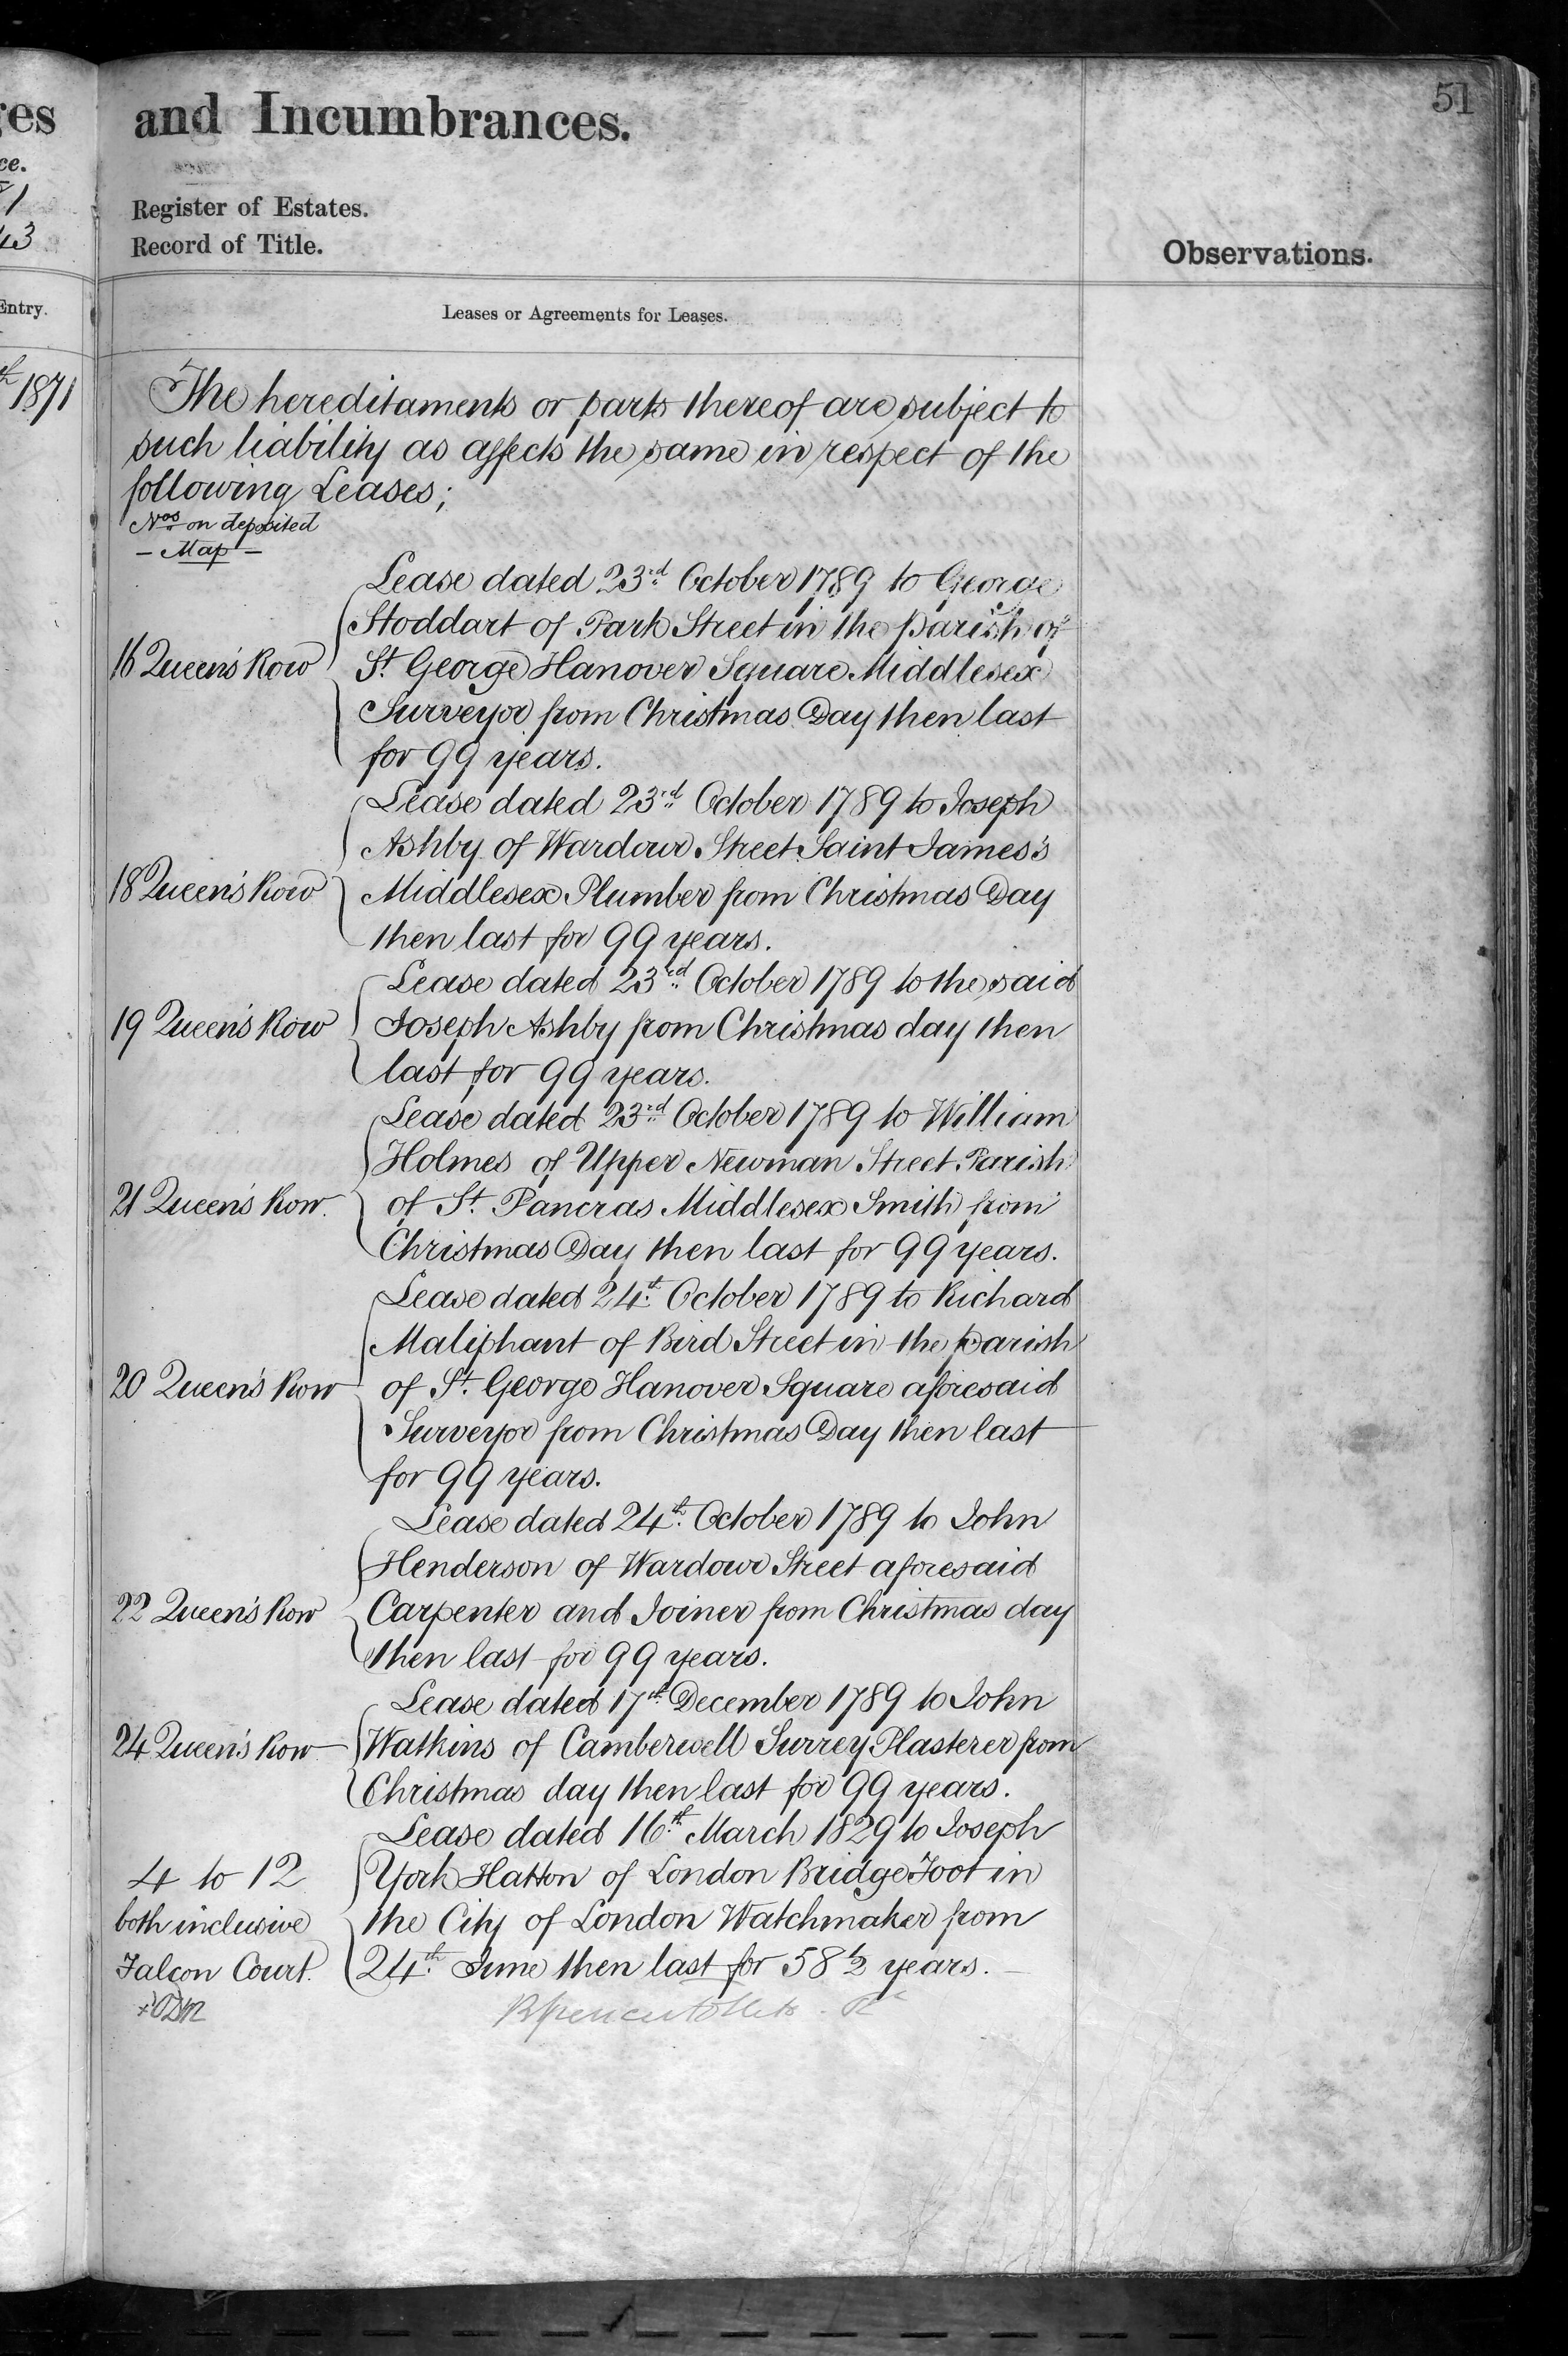 ges
ce.
1
43
Entry.
th 1871
51
and Incumbrances.
Register of Estates.
Record of Title.
Observations.
Leases or Agreements for Leases.
The hereditaments or parts thereof are subject to
such liability as affects the same in respect of the
following Leases;
Nos on deposited
– Map –
Lease dated 23rd October 1789 to George
Stoddart of Park Street in the parish of
16 Queen's Row St. George Hanover Square Middlesex
Surveyor from Christmas Day then last
for 99 years.
Lease dated 23rd October 1789 to Joseph
Ashby of Wardour Street Saint James's
18 Queen's Row Middlesex Plumber from Christmas Day
then last for 99 years.
Lease dated 23rd October 1789 to the said
19 Queen's Row Joseph Ashby from Christmas day then
last for 99 years.
Lease dated 23rd October 1789 to William
Holmes of Upper Newman Street Parish
21 Queen's Row. of St. Pancras Middlesex Smith from
Christmas Day then last for 99 years.
Lease dated 24t. October 1789 to Richard
Maliphant of Bird Street in the parish
20 Queen's Row of St. George Hanover Square aforesaid
Surveyor from Christmas Day then last
for 99 years.
Lease dated 24th. October 1789 to John
Henderson of Wardour Street aforesaid
22 Queen's Row Carpenter and Joiner from Christmas day
then last for 99 years.
Lease dated 17th. December 1789 to John
24 Queen's Row Watkins of Camberwell Surrey Plasterer from
Christmas day then last for 99 years.
Lease dated 16th. March 1829 to Joseph
4 to 12 York Hatton of London Bridge Foot in
both inclusive the City of London Watchmaker from
Falcon Court. 24th. June then last for 58½ years. –